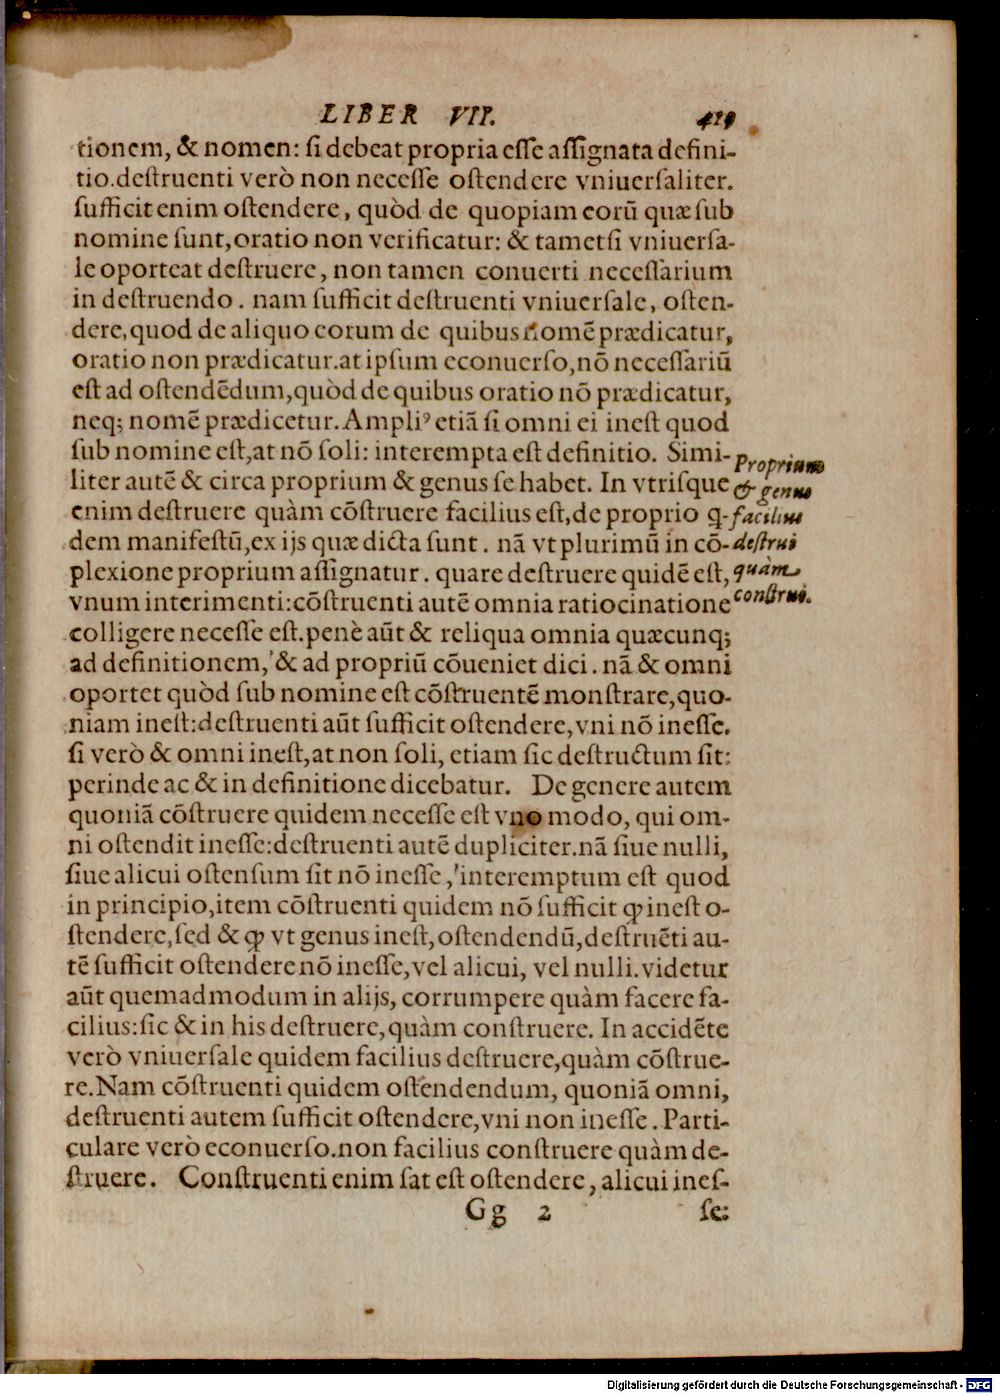 LIBER VII.
tionem, & nomen: si debeat propria esse assignata defini-
tio.destruenti verò non necesse ostendere vniuersaliter.
sufficit enim ostendere, quòd de quopiam eorũ quæ sub
nomine sunt, oratio non verificatur: & tametsi vniuersa-
le oporteat destruere, non tamen conuerti necessarium
in destruendo. nam sufficit destruenti vniuersale, osten-
dere, quod de aliquo eorum de quibus nomẽ prædicatur,
oratio non prædicatur.at ipsum econuerso, nõ necessariũ
est ad ostendẽdum, quòd de quibus oratio nõ prædicatur,
neq; nomẽ prædicetur. Ampliꝰ etiã si omni ei inest quod
sub nomine est, at nõ soli: interempta est definitio. Simi-
liter autẽ & circa proprium & genus se habet. In vtrisque
enim destruere quàm cõstruere facilius est, de proprio q-
dem manifestũ, ex ijs quæ dicta sunt. nã vt plurimũ in cõ-
plexione proprium assignatur. quare destruere quidẽ est,
vnum interimenti: cõstruenti autẽ omnia ratiocinatione
colligere necesse est. penè aũt & reliqua omnia quæcunq;
ad definitionem, & ad propriũ cõueniet dici. nã & omni
oportet quòd sub nomine est cõstruentẽ monstrare, quo-
niam inest: destruenti aũt sufficit ostendere, vni nõ inesse.
si verò & omni inest, at non soli, etiam sic destructum sit:
perinde ac & in definitione dicebatur. De genere autem
quoniã cõstruere quidem necesse est vno modo, qui om-
ni ostendit inesse: destruenti autẽ dupliciter. nã siue nulli,
siue alicui ostensum sit nõ inesse, interemptum est quod
in principio, item cõstruenti quidem nõ sufficit ꝙ inest o-
stendere, sed & ꝙ vt genus inest, ostendendũ, destruẽti au-
tẽ sufficit ostendere nõ inesse, vel alicui, vel nulli. videtur
aũt quemadmodum in alijs, corrumpere quàm facere fa-
cilius: sic & in his destruere, quàm construere. In accidẽte
verò vniuersale quidem facilius destruere, quàm cõstrue-
re. Nam cõstruenti quidem ostendendum, quoniã omni,
destruenti autem sufficit ostendere, vni non inesse. Parti-
culare verò econuerso. non facilius construere quàm de-
struere. Construenti enim sat est ostendere, alicui ines-
Gg 2 se:
Proprium
& genus
facilius
destrui
quam
construi.
Digitalisierung gefördert durch die Deutsche Forschungsgemeinschaft - DFG